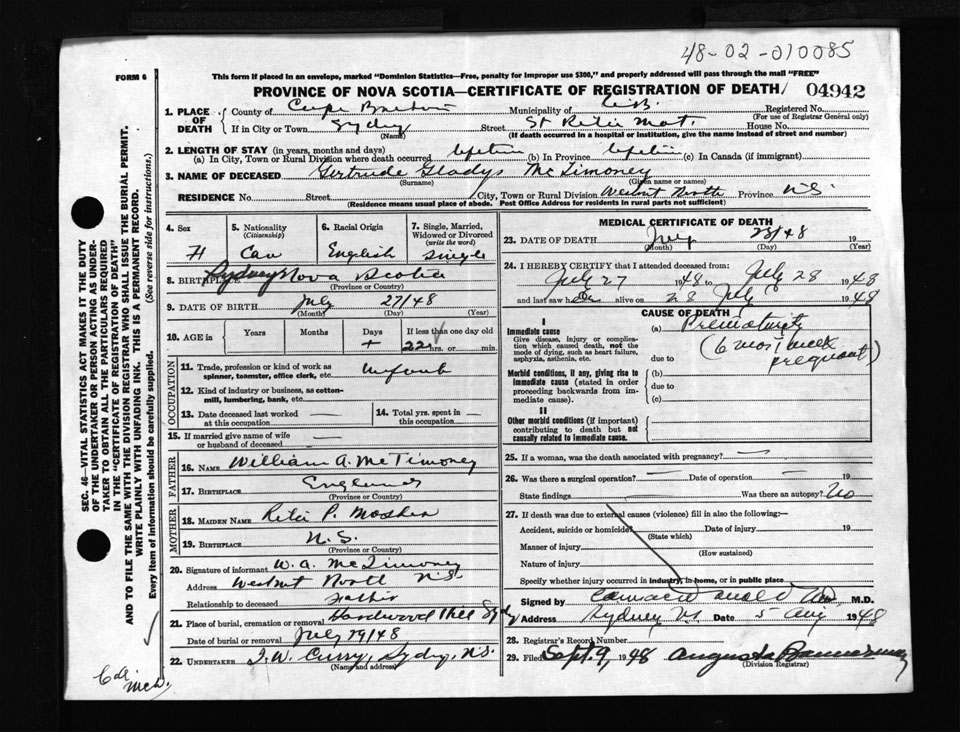 48-02-010085
FORM 6
This form if placed in an envelope, marked "Dominion Statistics—Free, penalty for improper use $300," and properly addressed will pass through the mail "FREE"
PROVINCE OF NOVA SCOTIA—CERTIFICATE OF REGISTRATION OF DEATH/ 04942
1. PLACE OF DEATH
County of Cape Breton Municipality of C.B. Registered No.
(For use of Registrar General only)
If in City or Town Sydney Street St Rita Mat. House No.
(Name) (If death occurred in a hospital or institution, give the name instead of street and number)
2. LENGTH OF STAY (in years, months and days)
(a) In City, Town or Rural Division where death occurred Lifetime (b) In Province Lifetime (c) In Canada (if immigrant)
3. NAME OF DECEASED Gertrude Gladys McTimoney
(Surname) (Given name or names)
RESIDENCE No. Street City, Town or Rural Division Province N.S.
(Residence means usual place of abode. Post Office Address for residents in rural parts not sufficient)
4. Sex
5. Nationality (Citizenship)
6. Racial Origin
7. Single, Married, Widowed or Divorced (write the word)
Can English Single
8. BIRTHPLACE Sydney Nova Scotia
(Province or Country)
9. DATE OF BIRTH July 27/48
(Month) (Day) (Year)
10. AGE in Years Months Days If less than one day old
+ 22 hrs. or min.
OCCUPATION
11. Trade, profession or kind of work as spinner, teamster, office clerk, etc. infant
12. Kind of industry or business, as cotton-mill, lumbering, bank, etc. —
13. Date deceased last worked at this occupation —
14. Total yrs. spent in this occupation —
15. If married give name of wife or husband of deceased —
FATHER
16. NAME William A. McTimoney
17. BIRTHPLACE England
(Province or Country)
MOTHER
18. MAIDEN NAME Rita P. Mosher
19. BIRTHPLACE N.S.
(Province or Country)
20. Signature of informant W. A. McTimoney
Address N.S.
Relationship to deceased Father
21. Place of burial, cremation or removal Hardwood Hill Syd
Date of burial or removal July 29/48
22. UNDERTAKER T. W. Curry, Sydney, N.S.
(Name and address)
MEDICAL CERTIFICATE OF DEATH
23. DATE OF DEATH July 28/48 19
(Month) (Day) (Year)
24. I HEREBY CERTIFY that I attended deceased from:
July 27 1948 to July 28 1948
and last saw her alive on 28 July 1948
CAUSE OF DEATH
I
Immediate cause
Give disease, injury or complication which caused death, not the mode of dying, such as heart failure, asphyxia, asthenia, etc.
(a) Prematurity
due to (6 mos 1 week pregnant)
Morbid conditions, if any, giving rise to immediate cause (stated in order proceeding backwards from immediate cause).
(b)
due to
(c)
II
Other morbid conditions (if important) contributing to death but not causally related to immediate cause.
25. If a woman, was the death associated with pregnancy? —
26. Was there a surgical operation? — Date of operation — 19
State findings — Was there an autopsy? No
27. If death was due to external causes (violence) fill in also the following:—
Accident, suicide or homicide Date of injury 19
(State which)
Manner of injury
(How sustained)
Nature of injury
Specify whether injury occurred in industry, in home, or in public place
Signed by M.D.
Address Sydney N.S. Date 5 Aug 1948
28. Registrar's Record Number
29. Filed Sept. 9, 1948 Augusta Bannerman
(Division Registrar)
SEC. 46—VITAL STATISTICS ACT MAKES IT THE DUTY OF THE UNDERTAKER OR PERSON ACTING AS UNDERTAKER TO OBTAIN ALL THE PARTICULARS REQUIRED IN THE "CERTIFICATE OF REGISTRATION OF DEATH" AND TO FILE THE SAME WITH THE DIVISION REGISTRAR WHO SHALL ISSUE THE BURIAL PERMIT.
WRITE PLAINLY WITH UNFADING INK. THIS IS A PERMANENT RECORD.
Every item of information should be carefully supplied. (See reverse side for instructions.)